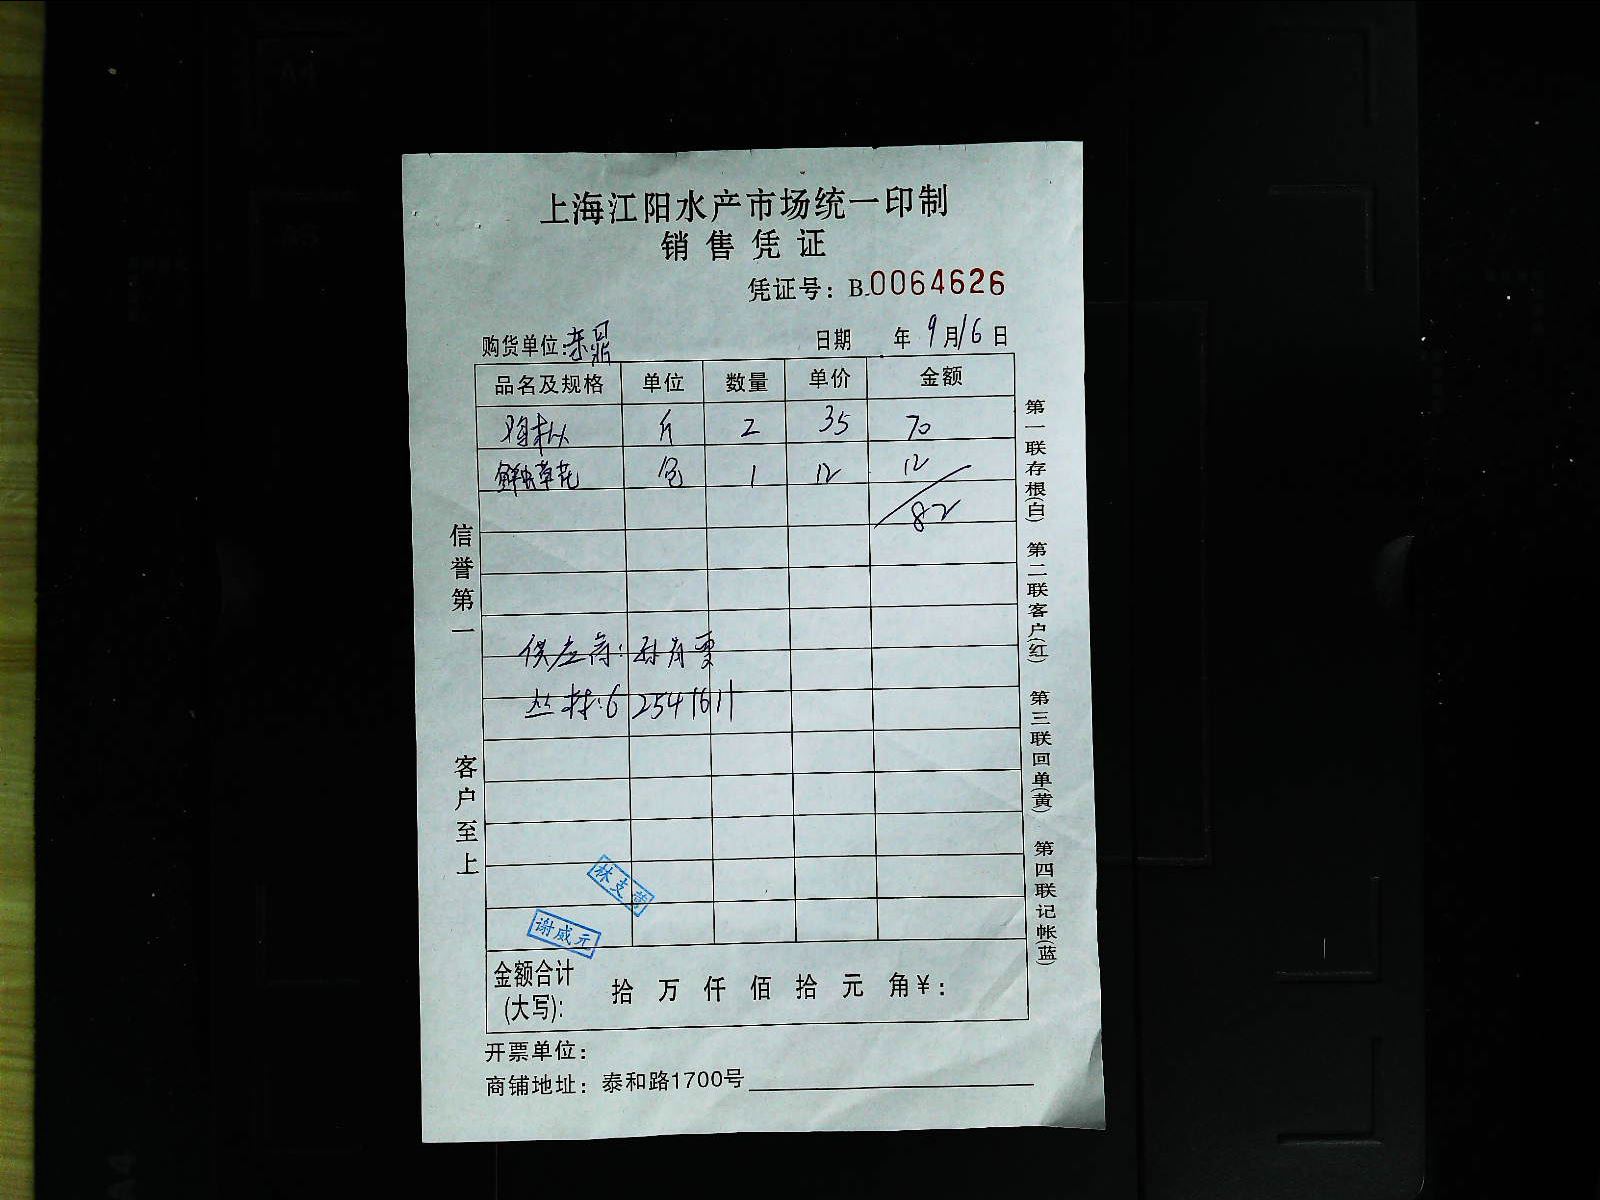 上海江阳水产市场统一印制
销售凭证
凭证号：B.0064626
购货单位:
日期 年 9 月 16 日
品名及规格 单位 数量 单价 金额
鸡枞 斤 2 35 70
鲜虫草花 包 1 12 12
82
供应商：孙
丛林：62541611
林支
谢威元
金额合计(大写): 拾 万 仟 佰 拾 元 角￥：
开票单位：
商铺地址：泰和路1700号
信誉第一
客户至上
第一联存根(白) 第二联客户(红) 第三联回单(黄) 第四联记帐(蓝)